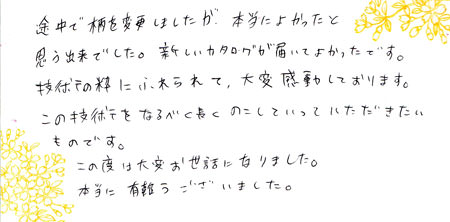 途中で柄を変更しましたが、本当によかったと
思う出来でした。新しいカタログが届いてよかったです。
技術の粋にふれられて、大変感動しております。
この技術をなるべく長くのこしていっていただきたい
ものです。
この度は大変お世話になりました。
本当に有難うございました。